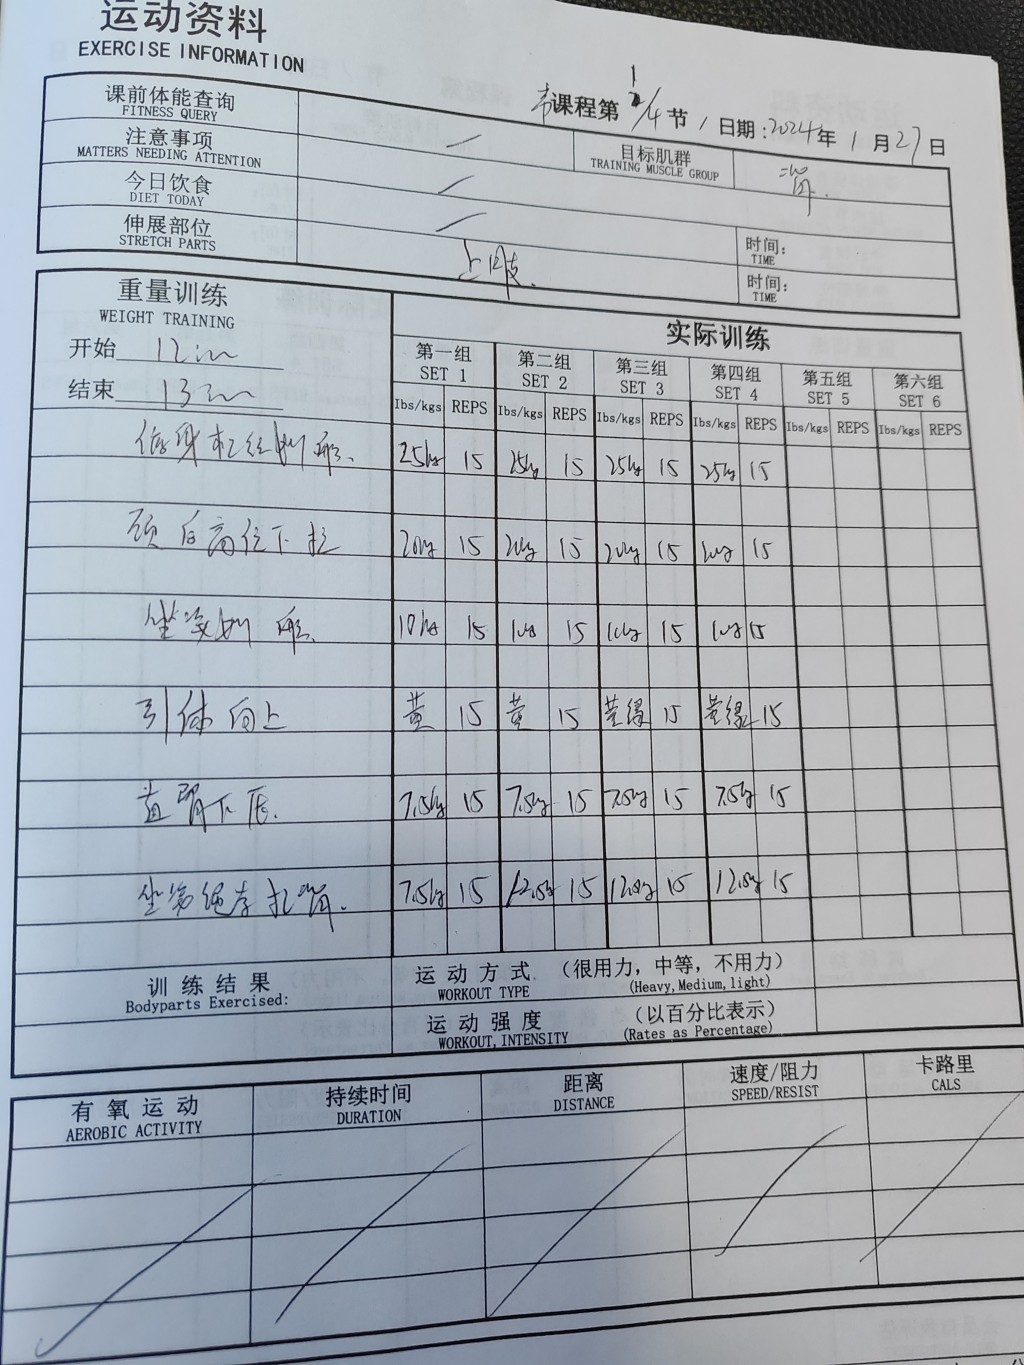 运动资料
EXERCISE INFORMATION
课程第 1/4 节 / 日期:2024年 1 月 27 日
课前体能查询
FITNESS QUERY
目标肌群
TRAINING MUSCLE GROUP
背
注意事项
MATTERS NEEDING ATTENTION
今日饮食
DIET TODAY
时间:
TIME
伸展部位
STRETCH PARTS
上肢
时间:
TIME
重量训练
WEIGHT TRAINING
实际训练
开始 12:00
结束 13:00
第一组 第二组 第三组 第四组 第五组 第六组
SET 1 SET 2 SET 3 SET 4 SET 5 SET 6
Ibs/kgs REPS Ibs/kgs REPS Ibs/kgs REPS Ibs/kgs REPS Ibs/kgs REPS Ibs/kgs REPS
俯身杠铃划船 25kg 15 25kg 15 25kg 15 25kg 15
颈后高位下拉 20kg 15 20kg 15 20kg 15 20kg 15
坐姿划船 10kg 15 10kg 15 10kg 15 10kg 15
引体向上 黄 15 黄 15 黄绿 15 黄绿 15
直臂下压 7.5kg 15 7.5kg 15 7.5kg 15 7.5kg 15
坐姿绳索 7.5kg 15 12.5kg 15 12.5kg 15 12.5kg 15
训练结果
Bodyparts Exercised:
运动方式 (很用力,中等,不用力)
WORKOUT TYPE (Heavy,Medium,light)
运动强度 (以百分比表示)
WORKOUT,INTENSITY (Rates as Percentage)
有氧运动 持续时间 距离 速度/阻力 卡路里
AEROBIC ACTIVITY DURATION DISTANCE SPEED/RESIST CALS